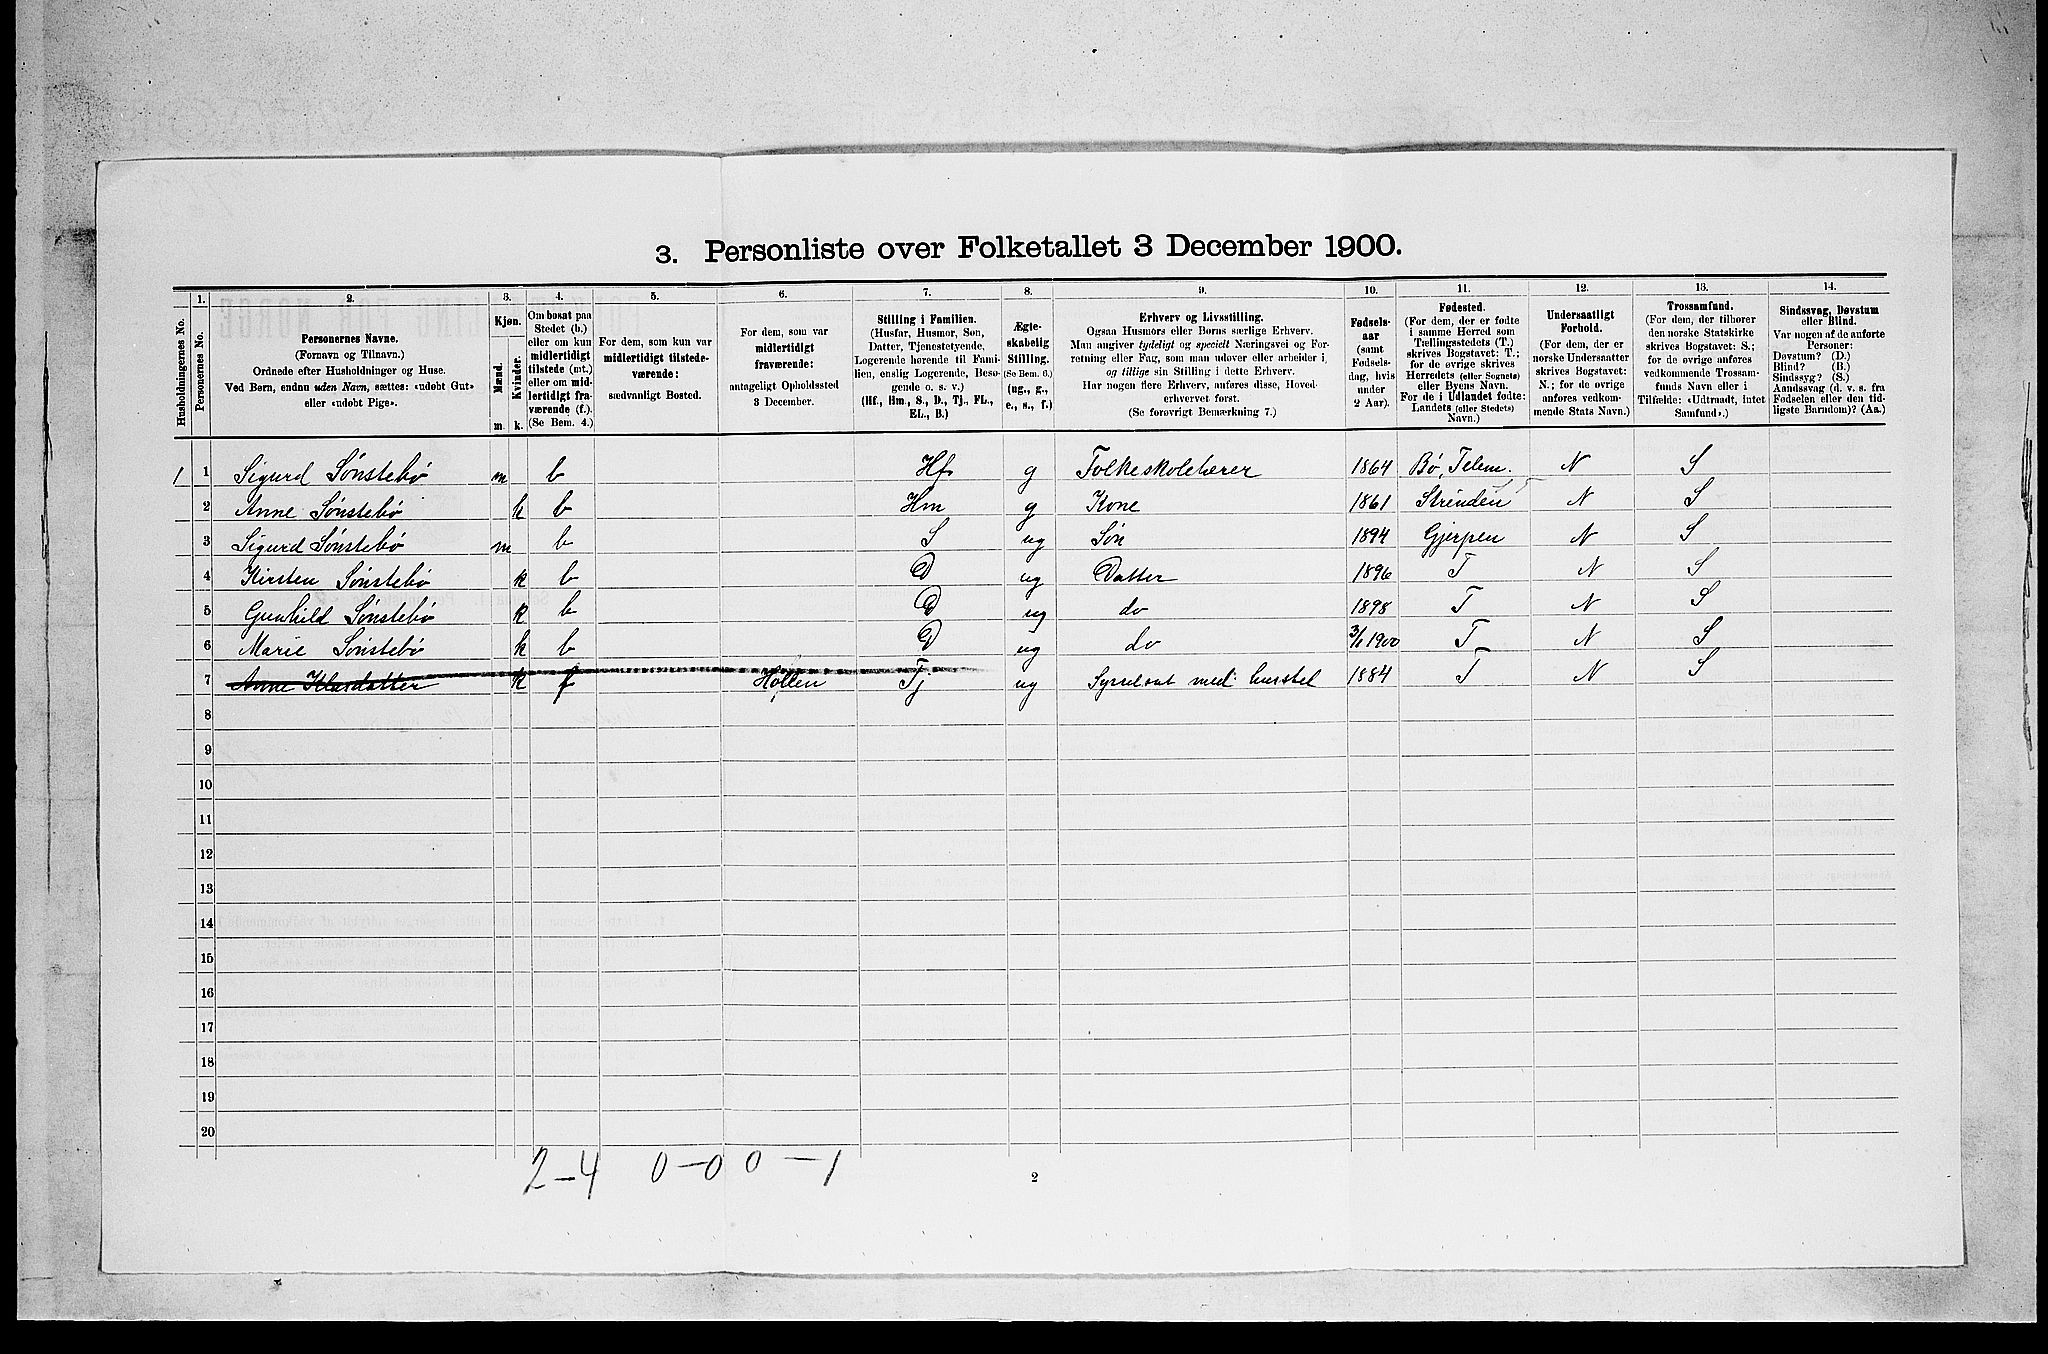 3. Personliste over Folketallet 3 December 1900.
Husholdningernes No.
1.
Personernes No.
2.
Personernes Navne.
(Fornavn og Tilnavn.)
Ordnede efter Husholdninger og Huse.
Ved Børn, endnu uden Navn, sættes: «udøbt Gut»
eller «udøbt Pige».
3.
Kjøn.
Mænd.
Kvinder.
m. k.
4.
Om bosat paa
Stedet (b.)
eller om kun
midlertidigt
tilstede (mt.)
eller om mid-
lertidigt fra-
værende (f.).
(Se Bem. 4.)
5.
For dem, som kun var
midlertidigt tilstede-
værende:
sædvanligt Bosted.
6.
For dem, som var
midlertidigt
fraværende:
antageligt Opholdssted
3 December.
7.
Stilling i Familien.
(Husfar, Husmor, Søn,
Datter, Tjenestetyende,
Logerende hørende til Fami-
lien, enslig Logerende, Besø-
gende o. s. v.)
(Hf., Hm., S., D., Tj., FL.,
EL., B.)
8.
Ægte-
skabelig
Stilling.
(Se Bem. 6.)
(ug., g.,
e., s., f.)
9.
Erhverv og Livsstilling.
Ogsaa Husmors eller Børns særlige Erhverv.
Man angiver tydeligt og specielt Næringsvei og For-
retning eller Fag, som man udøver eller arbeider i,
og tillige sin Stilling i dette Erhverv.
Har nogen flere Erhverv, anføres disse, Hoved-
erhvervet først.
(Se forøvrigt Bemærkning 7.)
10.
Fødsels-
aar
(samt
Fødsels-
dag, hvis
under
2 Aar).
11.
Fødested.
(For dem, der er fødte
i samme Herred som
Tællingsstedets (T.)
skrives Bogstavet: T.;
for de øvrige skrives
Herredets (eller Sognets)
eller Byens Navn.
For de i Udlandet fødte:
Landets (eller Stedets)
Navn.)
12.
Undersaatligt
Forhold.
(For dem, der er
norske Undersaatter
skrives Bogstavet:
N.; for de øvrige
anføres vedkom-
mende Stats Navn.)
13.
Trossamfund.
(For dem, der tilhører
den norske Statskirke
skrives Bogstavet: S.;
for de øvrige anføres
vedkommende Trossam-
funds Navn eller i
Tilfælde: «Udtraadt, intet
Samfund».)
14.
Sindssvag, Døvstum
eller Blind.
Var nogen af de anførte
Personer:
Døvstum? (D.)
Blind? (B.)
Sindssyg? (S.)
Aandssvag (d. v. s. fra
Fødselen eller den tid-
ligste Barndom)? (Aa.)
1 1 Sigurd Sønstebø m b Hf g Folkeskolelærer 1864 Bø, Telem. N S
2 Anne Sønstebø k b Hm g Kone 1861 Strinden N S
3 Sigurd Sønstebø m b S ug Søn 1894 Gjerpen N S
4 Kirsten Sønstebø k b D ug Datter 1896 T N S
5 Gunhild Sønstebø k b D ug do 1898 T N S
6 Marie Sønstebø k b D ug do 3/1 1900 T N S
7 Anne k f Hollen Tj ug Sysselsat med husstel 1884 T N S
8
9
10
11
12
13
14
15
16
17
18
19
20
2-4 0-0 0-1
2